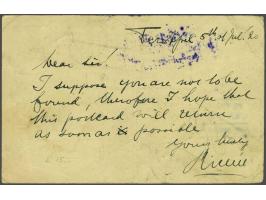 5th of Juli '20
Dear Sir!
I suppose you are not to be
found, therefore I hope that
this postcard will return
as soon as possible
Yours truly